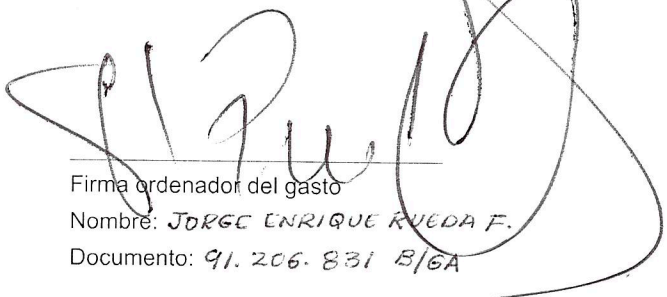 Firma ordenador del gasto
Nombre: JORGE ENRIQUE RUEDA F.
Documento: 91.206.831 B/GA